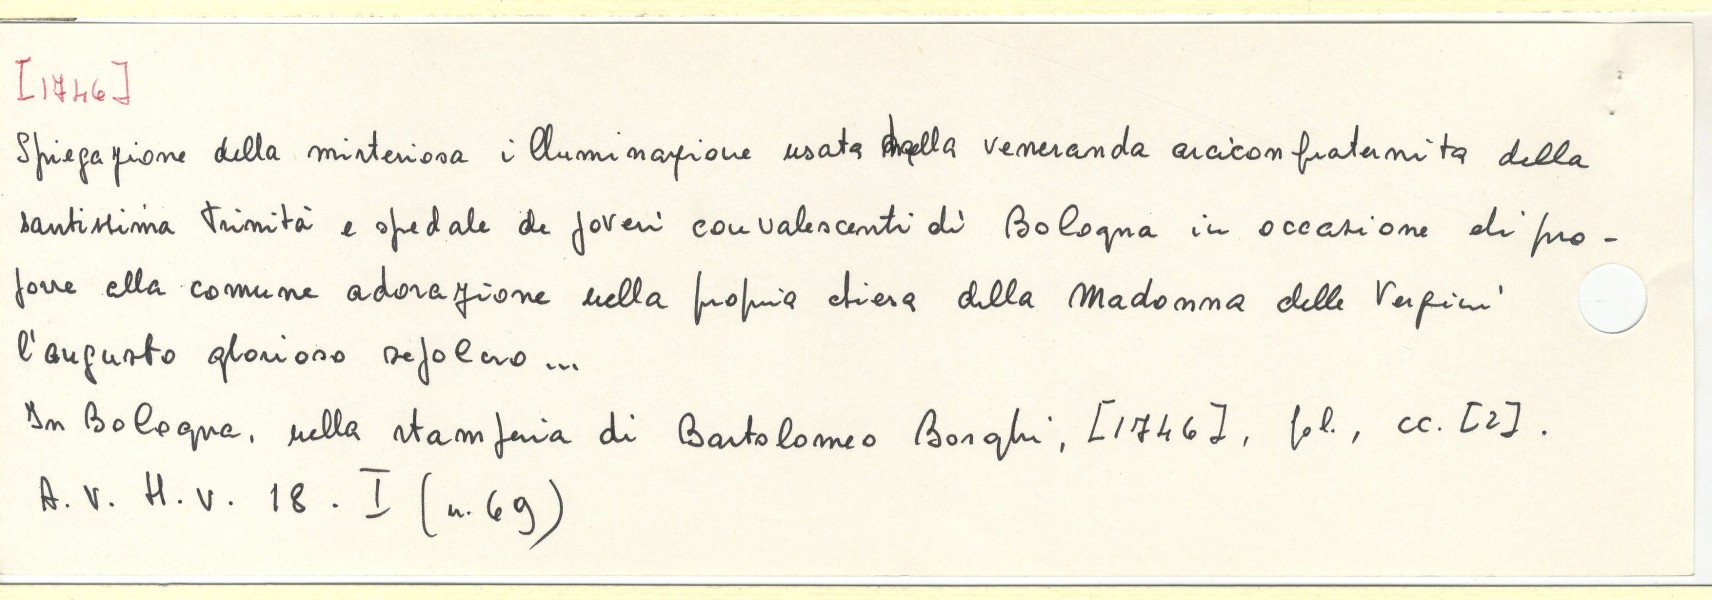 [1746]
Spiegazione della misteriosa illuminazione usata dalla veneranda arciconfraternita della
santissima Trinità e spedale de poveri convalescenti di Bologna in occasione di pro-
porre alla comune adorazione nella propria chiesa della Madonna delle Vergini
l'augusto glorioso sepolcro ...
In Bologna, nella stamperia di Bartolomeo Borghi, [1746], fol., cc. [2].
A.V. H.V. 18. I (n. 69)